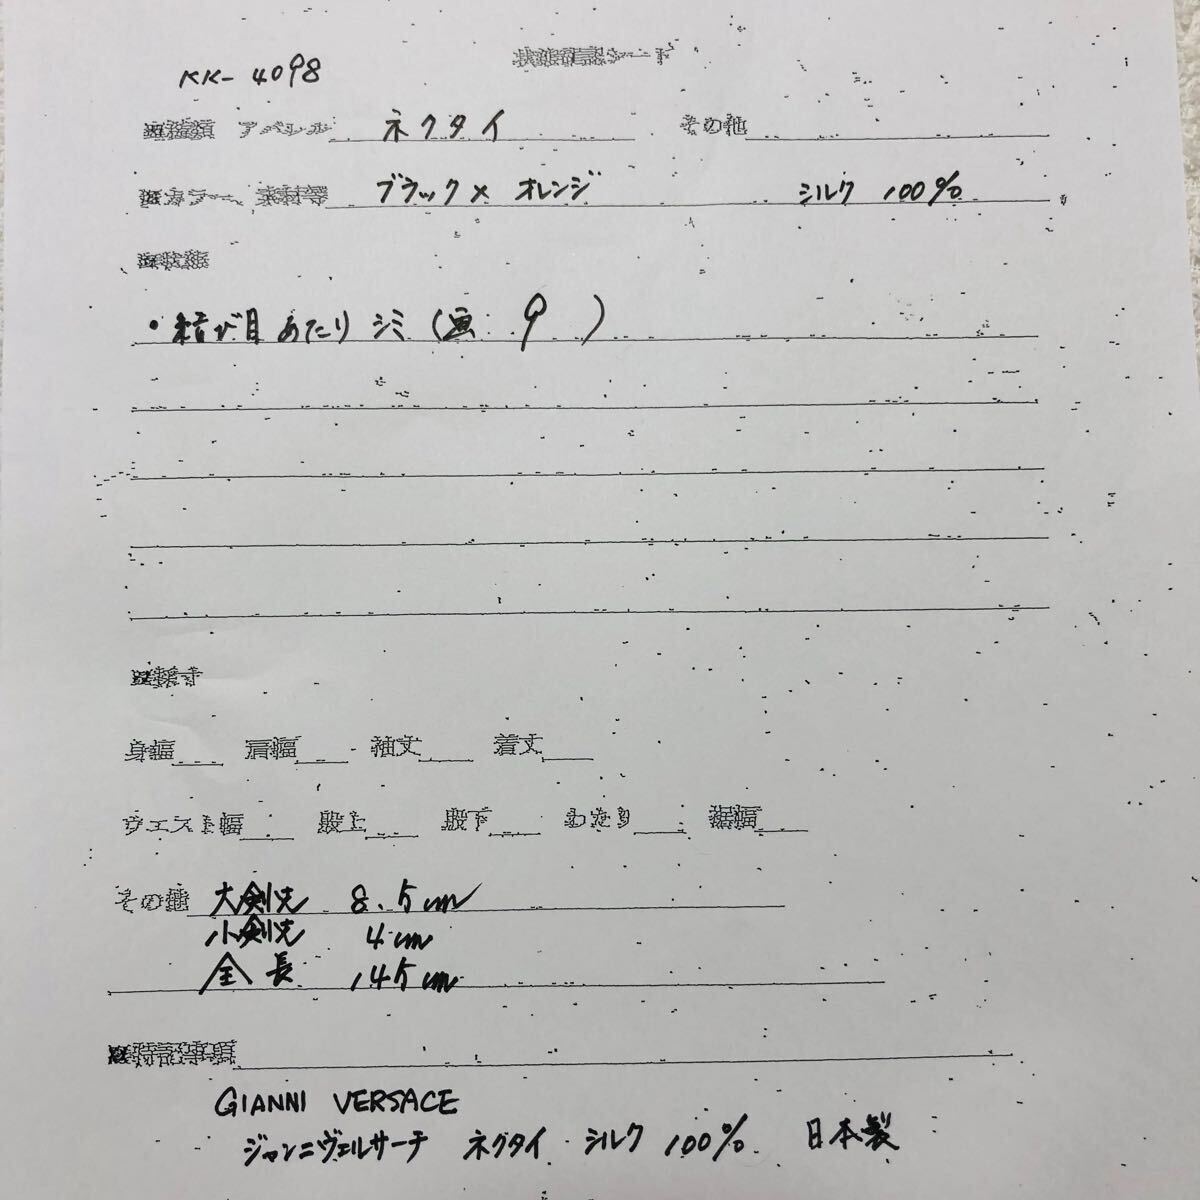 状態確認シート
KK-4098
アパレル ネクタイ その他
カラー、素材等 ブラック×オレンジ シルク 100%
状態
・結び目あたりシミ(画 9 )
採寸
身幅 肩幅 袖丈 着丈
ウエスト幅 股上 股下 わたり 裾幅
その他 大剣先 8.5cm
小剣先 4cm
全長 145cm
特記事項
GIANNI VERSACE
ジャンニヴェルサーチ ネクタイ シルク 100% 日本製